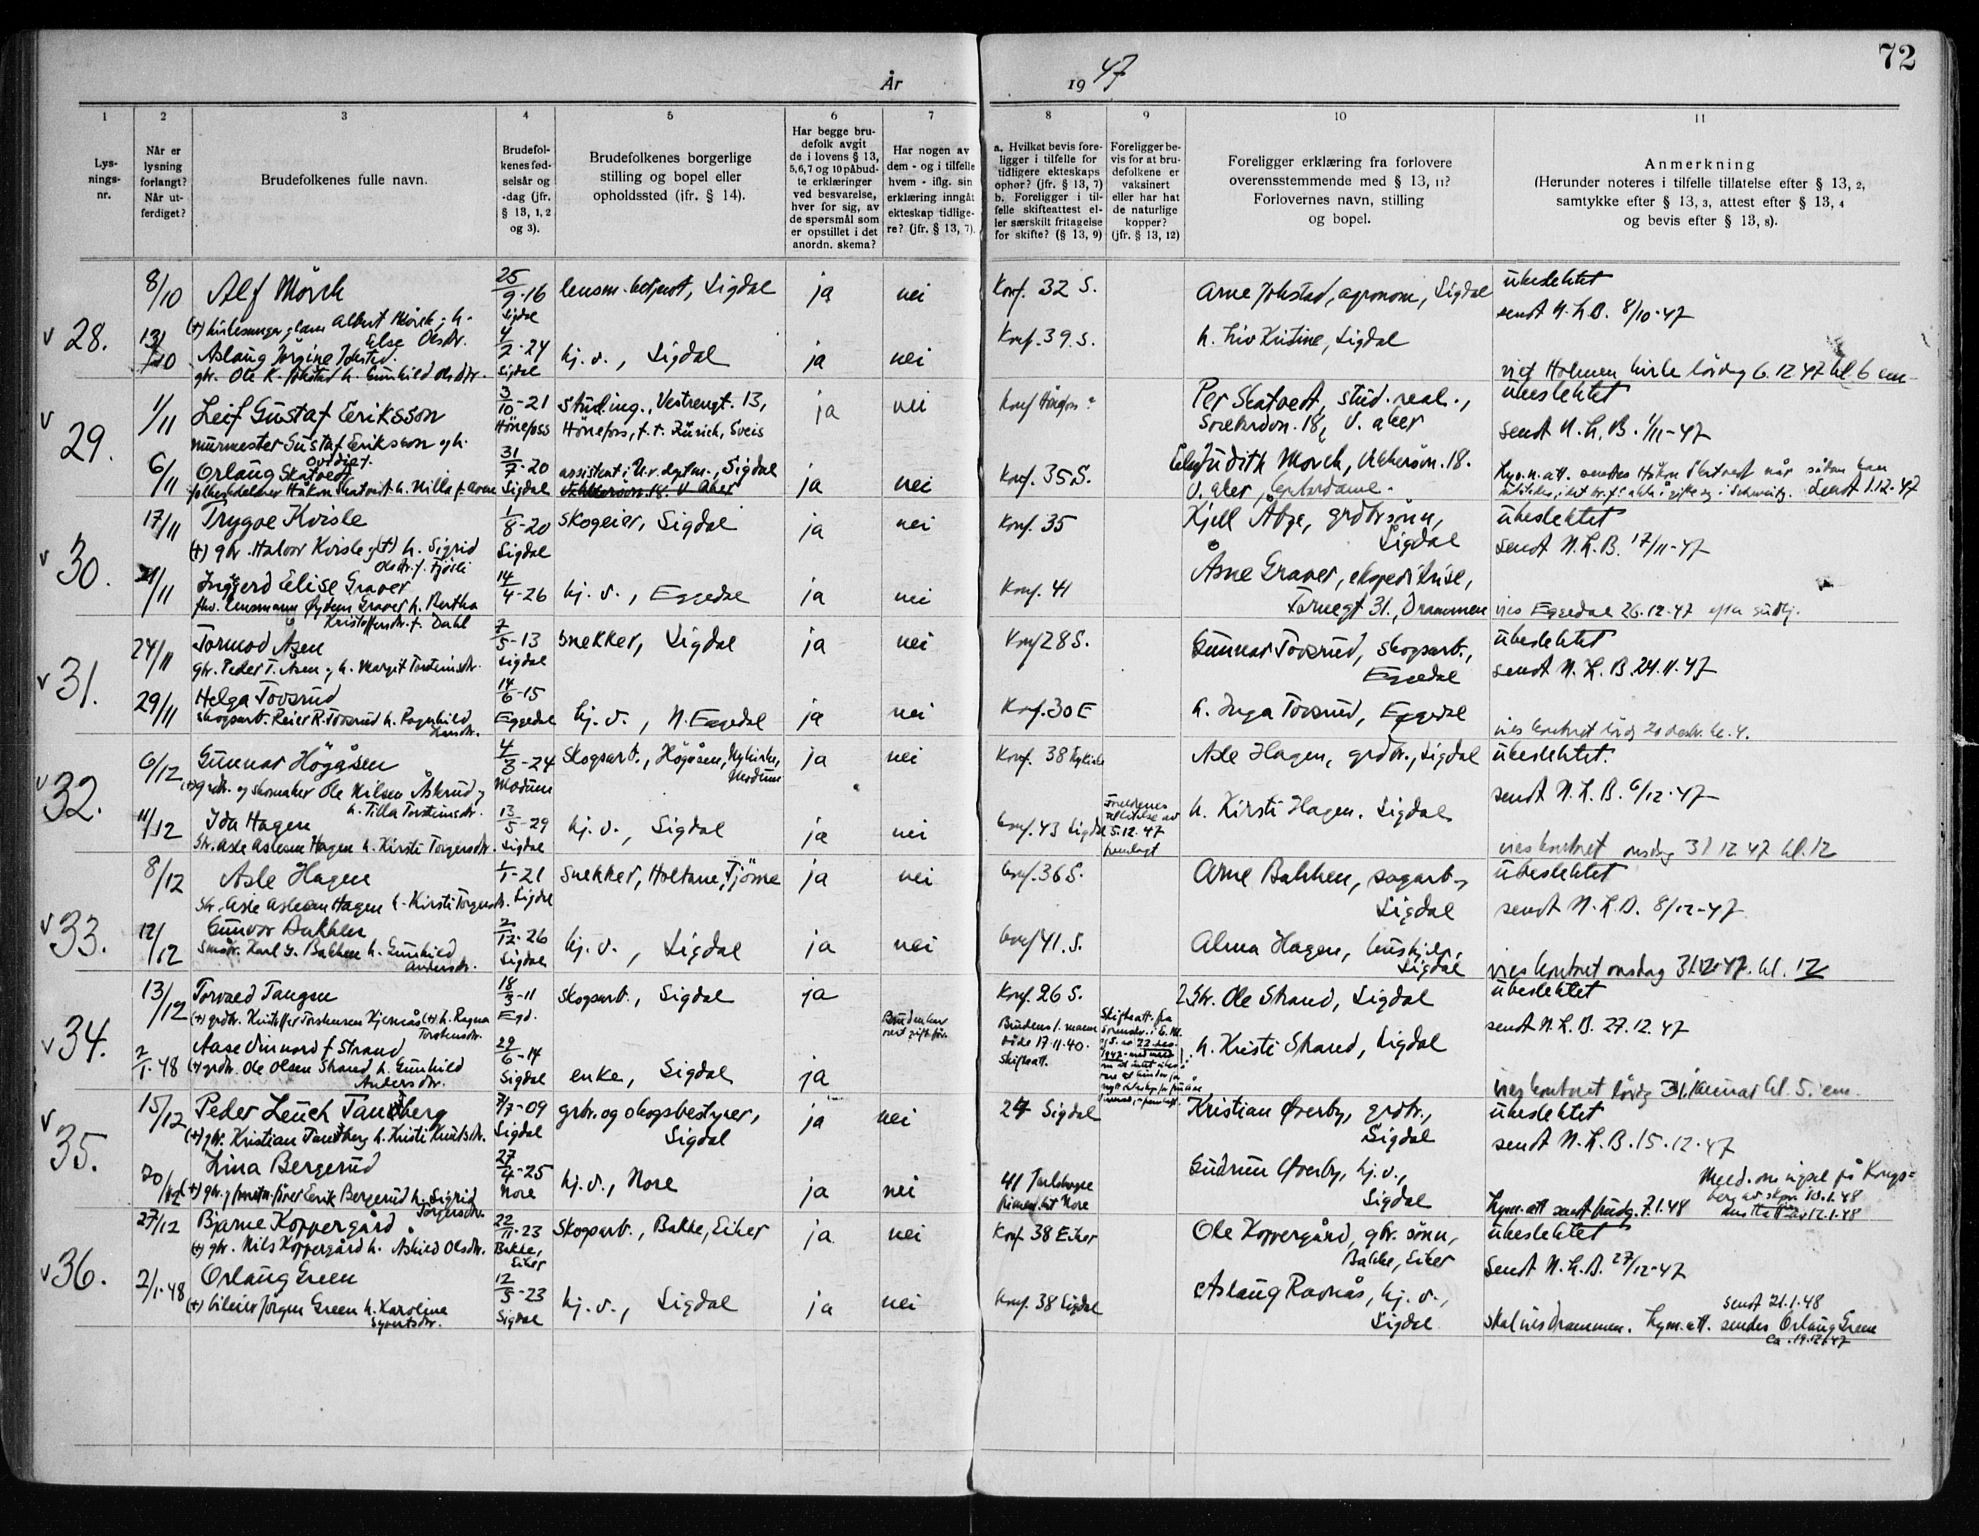 72
År 19 47
1 2 3 4 5 6 7 8 9 10 11
Lys-
nings-
nr.
Når er
lysning
forlangt?
Når ut-
ferdiget?
Brudefolkenes fulle navn.
Brudefol-
kenes fød-
selsår og
-dag (jfr.
§ 13, 1, 2
og 3).
Brudefolkenes borgerlige
stilling og bopel eller
opholdssted (ifr. § 14).
Har begge bru-
defolk avgit
de i lovens § 13,
5,6,7 og 10 påbud-
te erklæringer
ved besvarelse,
hver for sig, av
de spørsmål som
er opstillet i det
anordn. skema?
Har nogen av
dem - og i tilfelle
hvem - iflg. sin
erklæring inngått
ekteskap tidlige-
re? (jfr. § 13, 7).
a. Hvilket bevis fore-
ligger i tilfelle for
tidligere ekteskaps
ophør? (jfr. § 13, 7)
b. Foreligger i til-
felle skifteattest el-
ler særskilt fritagelse
for skifte? (§ 13, 9)
Foreligger be-
vis for at bru-
defolkene er
vaksinert
eller har hat
de naturlige
kopper?
(jfr. § 13, 12)
Foreligger erklæring fra forlovere
overensstemmende med § 13, 11?
Forlovernes navn, stilling
og bopel.
Anmerkning
(Herunder noteres i tilfelle tillatelse efter § 13, 2,
samtykke efter § 13, 3, attest efter § 13, 4
og bevis efter § 13, 8).
v 28.
8/10 Alf Mörch 25/9-16 Sigdal lensm.betjent, Sigdal ja nei Konf. 32 S. Arne Jokstad, agronom, Sigdal ubeslektet
sendt N.L.B. 8/10-47
(+) kirkesanger, lærer Albert Mörch og h.
Else Olsdr.
Aslaug Jörgine Jokstad. 4/2-24 Sigdal hj.v., Sigdal ja nei Konf. 39 S. h. Liv Kristine, Sigdal
gbr. Ole K. Jokstad h. Gunhild Olsdtr.
viet Holmen kirke lördag 6.12.47 kl. 6 em.
v 29.
1/11 Leif Gustaf Eriksson 3/10-21 Hönefoss stud.ing., Vestrengt. 13,
Hönefoss, f.t. Zürich, Sveis ja nei Konf Hönefoss? Per Skatvedt, stud.real.,
Sörkedsvn. 18, V. Aker ubeslektet
sendt N.L.B. 1/11-47
murmester Gustaf Eriksson og h.
6/11 Orlaug Skatvedt 31/7-20 Sigdal assistent i U.v.dytm., Sigdal ja nei Konf. 35 S. Judith Mörch, Ullernsvn. 18.
V. Aker, kontordame.
folkeskolelærer Håkon Skatvedt h. Milla
Sendt 1.12-47
v 30.
17/11 Trygve Kvisle 1/8-20 Sigdal skogeier, Sigdal ja nei Konf. 35 Kjell Åbge, grdbr.sönn,
Sigdal ubeslektet
sendt N.L.B. 17/11-47
(+) gbr. Halvor Kvisle og (+) h. Sigrid
Olsdr. f. Fjösli
21/11 Ingerd Elise Graver 14/4-26 hj.v., Eggedal ja nei Konf. 41 Åsne Graver, ekspeditrise,
Tornegt 31, Drammen vies Eggedal 26.12.47 efter gudstj.
fhv. lensmann Öystein Graver h. Bertha
Kristoffersdr. f. Dahl
v 31.
24/11 Tormod Åsen 7/5-13 Sigdal snekker, Sigdal ja nei Konf 28 S. Gunnar Tovsrud, skogsarb.,
Eggedal ubeslektet
sendt N.L.B. 24.11.47
gbr. Peder T. Åsen og h. Margit Torsteinsdr.
29/11 Helga Tovsrud 14/6-15 Eggedal hj.v., N. Eggedal ja nei Konf. 30 E h. Inga Tovsrud, Eggedal
skogsarb. Reier R. Tovsrud h. Ragnhild
vies kontoret lördg 20 desbr. kl. 4.
v 32.
6/12 Gunnar Högåsen 4/3-24 Modum skogsarb., Högåsen, Nykirke,
Modum ja nei Konf. 38 Nykirke Asle Hagen, grdbr., Sigdal ubeslektet.
sendt N.L.B. 6/12-47
(+) grdbr. og skomaker Ole Nilsen Åsrud og
h. Tilla Torsteinsdr.
11/12 Ida Hagen 13/5-29 Sigdal hj.v., Sigdal ja nei Konf. 43 Sigdal Foreldrenes
tillatelse av
5.12.47
fremlagt h. Kirsti Hagen. Sigdal
gbr. Asle Aslesen Hagen h. Kirsti Torgersdr.
vies kontoret onsdag 31.12.47 kl. 12
v 33.
8/12 Asle Hagen 1/1-21 Sigdal snekker, Holtane, Tjöme ja nei Konf. 36 S. Arne Bakken, sagarb.,
Sigdal ubeslektet
sendt N.L.B. 8/12-47
gbr. Asle Aslesen Hagen h. Kirsti Torgersdr.
12/12 Gunvor Bakken 2/12-26 Sigdal hj.v., Sigdal ja nei Konf 41. S. Alma Hagen, hushjelp,
Sigdal
småbr. Karl J. Bakken h. Gunhild
Andersdr.
vies kontoret onsdag 31.12.47. kl. 12
v 34.
13/12 Torvald Tangen 18/3-11 Egd. skogsarb., Sigdal ja Konf. 26 S. gbr. Ole Strand, Sigdal ubeslektet
sendt N.L.B. 27.12.47
(+) grdbr. Kristoffer Torstensen Kjernås (+) h. Ragna
Torstensdr.
Bruden har
vært gift för.
Brudens f. mann
döde 17.11.40.
Skifteatt.
Skifteatt. fra
2/1.48 Aase Vinnord f. Strand 29/6-14 Sigdal enke, Sigdal ja h. Kristi Strand, Sigdal
(+) grdbr. Ole Olsen Strand h. Gunhild
Andersdr.
vies kontoret lördg 31. januar kl. 5. em.
v 35.
15/12 Peder Leuch Tandberg 7/7-09 Sigdal gbr. og skogsbestyrer,
Sigdal ja nei 24 Sigdal Kristian Överby, grdbr.,
Sigdal ubeslektet
sendt N.L.B. 15.12-47
(+) gbr. Kristian Tandberg h. Kristi Knutsdr.
20/12 Lina Bergerud 27/4-25 Nore hj.v., Nore ja nei Gudrun Överby, hj.v.,
Sigdal
(+) gbr. og Eerik Bergerud h. Sigrid
Torgersdr.
Medd. om vigsel på Kongs-
berg
lysn.att sendt 7.1.48
v 36.
27/12 Bjarne Koppergård 22/11-23 Bakke,
Eiker skogsarb., Bakke, Eiker ja nei Konf. 38 Eiker Ole Koppergård, gbr. sönn,
Bakke, Eiker ubeslektet
Sendt N.L.B. 27/12-47
(+) gbr. Nils Koppergård h. Åshild Olsdtr.
2/1.48 Orlaug Green 12/5-23 Sigdal hj.v., Sigdal ja nei Konf. 38 Sigdal Aslaug Ravnås, hj.v.,
Sigdal
(+) bileier Jörgen Green h. Karoline
Syvertsdr.
sendt 21.1.48
Skal vies Drammen. Lysn.att. sendes Orlaug Green
ca. 19.12.47